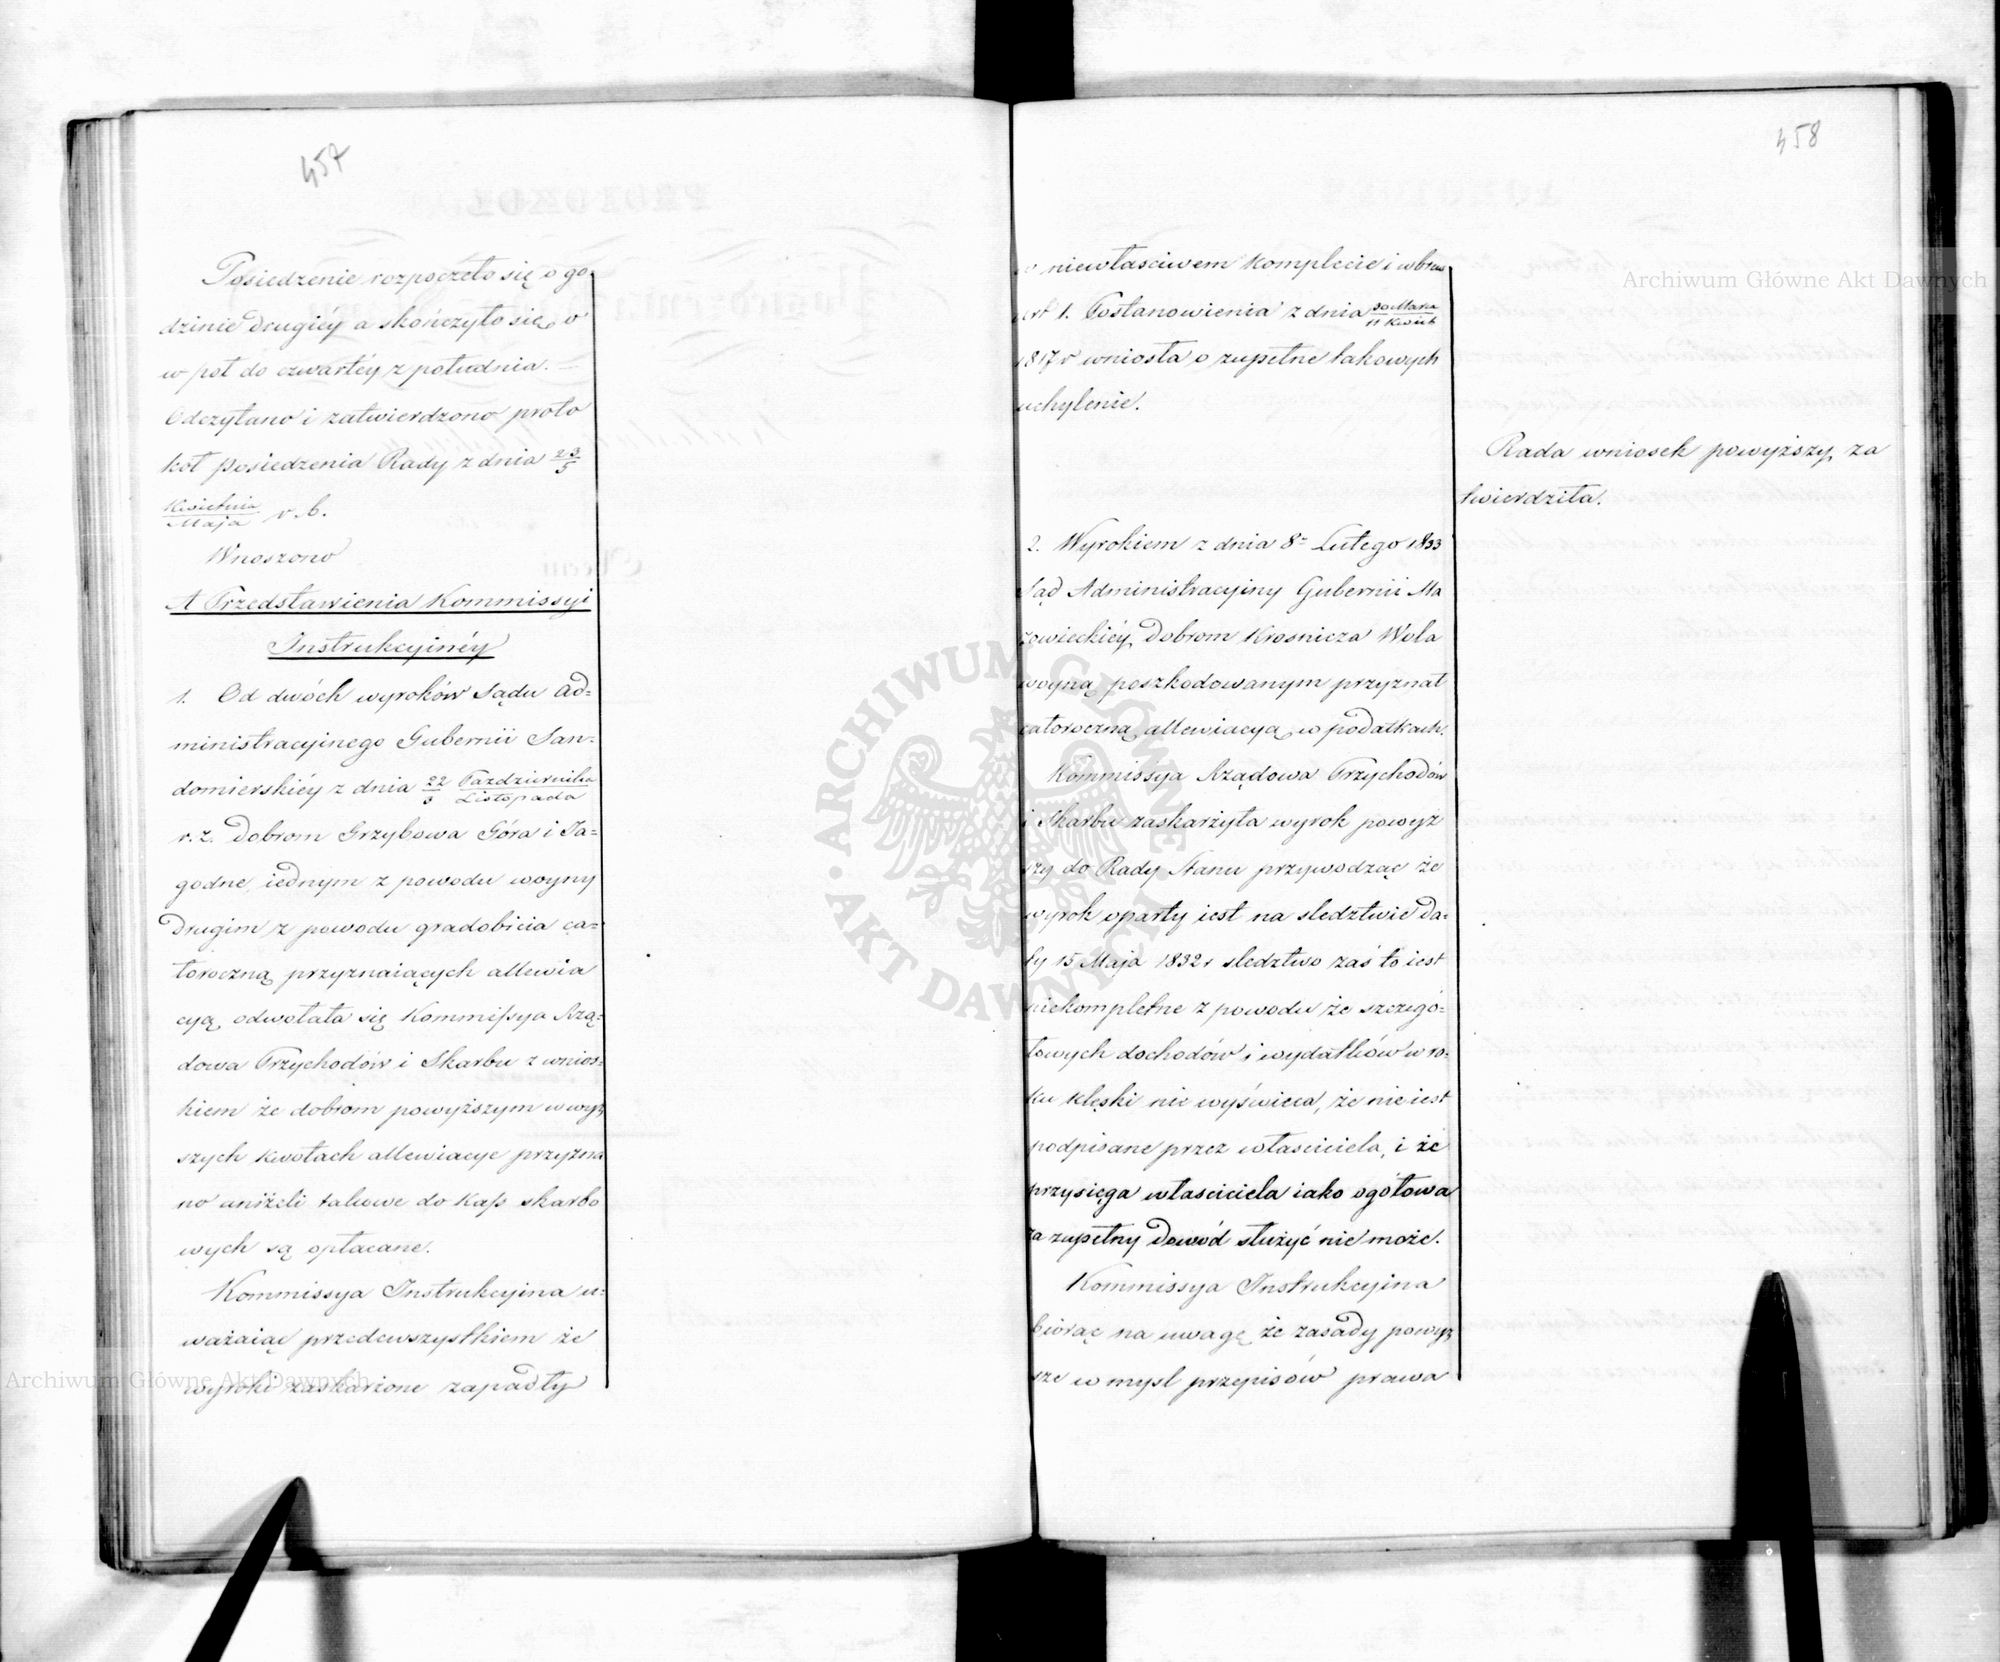 457
Posiedzenie rozpoczęło się o go
dzinie drugiéy a skończyło się o
w pół do czwartéy z południa.
Odczytano i zatwierdzono proto
kół posiedzenia Rady z dnia 23/5
Kwietnia/Maja r. b.
Wnoszono
A Przedstawienia Kommissyi
Instrukcyinéy
1. Od dwóch wyroków Sądu Ad-
ministracyjnego Gubernii San-
domierskiéy z dnia 22/3 Pazdziernika/Listopada
r. z. dobrom Grzybowa Góra i Ja-
godne, iednym z powodu woyny
drugim z powodu gradobicia ca-
łoroczną przyznaiących allewia
cyą, odwołała się Kommissya Rzą-
dowa Przychodów i Skarbu z wnios-
kiem że dobrom powyższym w wyż
szych kwotach allewiacye przyzna
no aniżeli takowe do kass skarbo
wych są opłacane.
Kommissya Instrukcyina u-
ważaiąc przedewszystkiem że
wyroki zaskarżone zapadły
458
w niewłaściwem komplecie i wbrew
art 1. Postanowienia z dnia 30 Marca/11 Kwiet
1817 r wniosła o zupełne takowych
uchylenie.
Rada wniosek powyższy za
twierdziła.
2. Wyrokiem z dnia 8 Lutego 1833
Sąd Administracyiny Gubernii Ma
zowieckiéy, dobrom Krosnicza Wola
woyną poszkodowanym przyznał
całoroczną allewiacyą w podatkach.
Kommissya Rządowa Przychodów
i Skarbu zaskarżyła wyrok powyż
szy do Rady Stanu przywodząc że
wyrok oparty iest na sledztwie da-
ty 15 Maja 1832 r sledztwo zaś to iest
niekompletne z powodu że szczegó-
łowych dochodów i wydatków w ro-
ku klęski nie wyświeca, że nie iest
podpisane przez właściciela, i że
przysięga właściciela iako ogółowa
za zupełny dowód służyć nie może.
Kommissya Instrukcyina
biorąc na uwagę że zasady powyż
sze w mysl przepisów prawa
Archiwum Główne Akt Dawnych
Archiwum Główne Akt Dawnych
ARCHIWUM GŁÓWNE AKT DAWNYCH